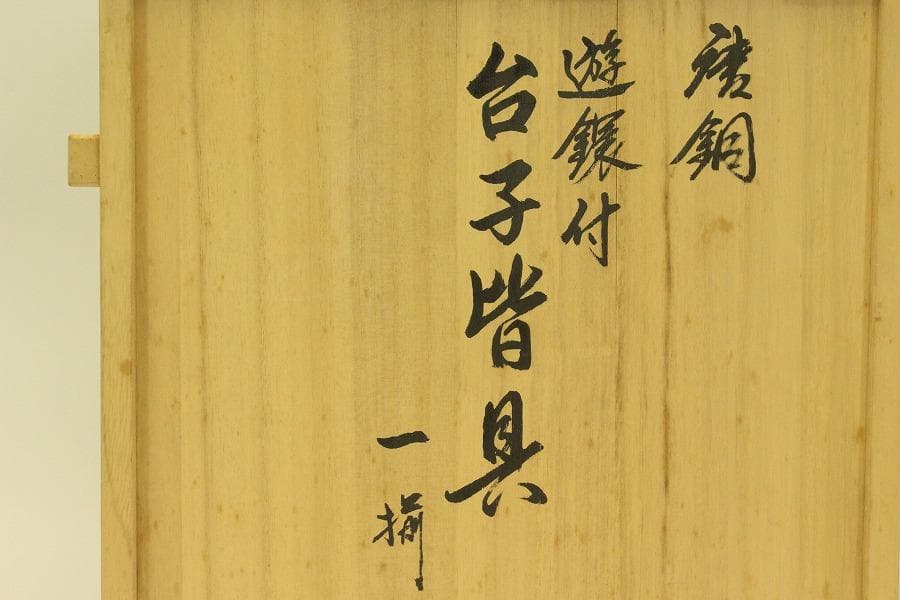 唐銅
遊鐶付
台子皆具
一揃